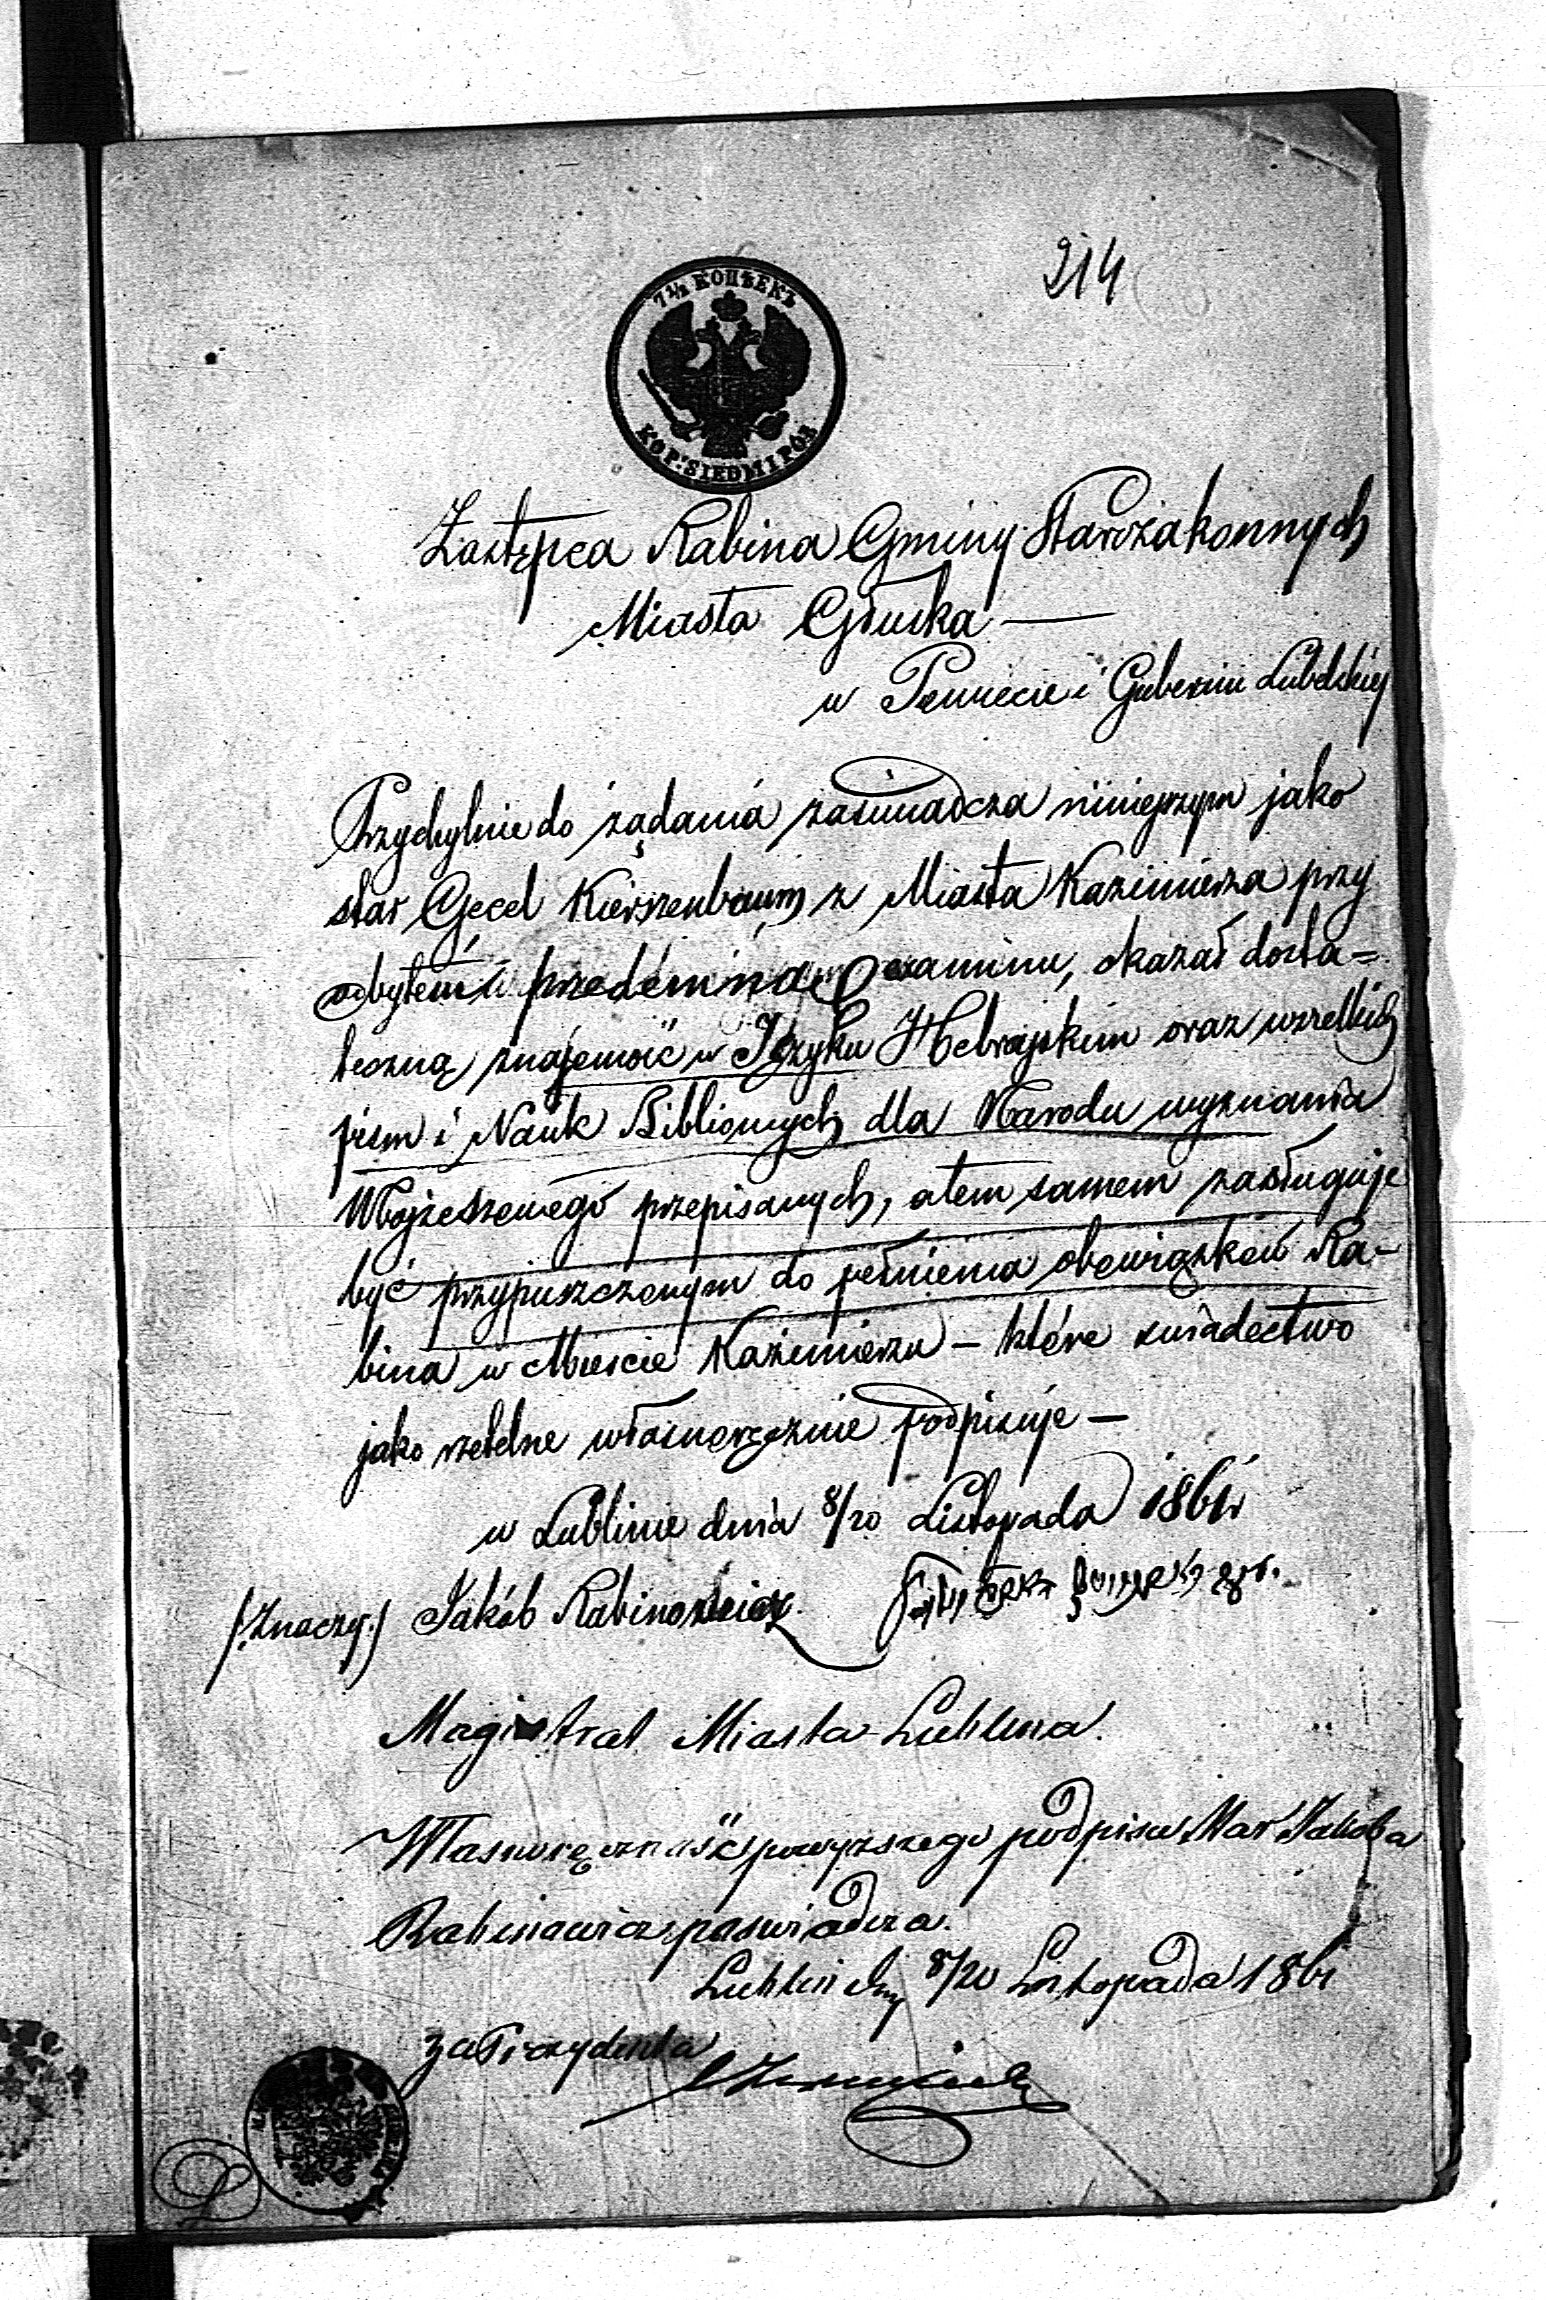 214
7½ КОПѢЕКЪ
KOP: SIEDM I PÓŁ
Zastępca Rabina Gminy Starozakonnych
Miasta Głuska —
w Powiecie i Gubernii Lubelskiey
Przychylnie do żądania zaświadcza niniejszym jako
star Gecel Kierszenbaum z Miasta Kazimierza przy
odbytem przedemną examinu, okazał dosta=
teczną znajomość w Języku Hebrajskim oraz wszelkich
pism i Nauk Biblionych dla Narodu wyznania
Mojżeszowego przepisanych, atem samem zasługuje
być przypuszczonym do pełnienia obowiązków Ra-
bina w Mieście Kazimierzu – które świadectwo
jako rzetelne własnoręcznie podpisuje —
w Lublinie dnia 8/20 Listopada 1861
/:Znaczy:/ Jakób Rabinowicz
Magistrat Miasta Lublina.
Własnoręczność powyższego podpisu Star Jakoba
Rabinowicz poświadcza.
Lublin dnia 8/20 Listopada 1861
za Prezydenta